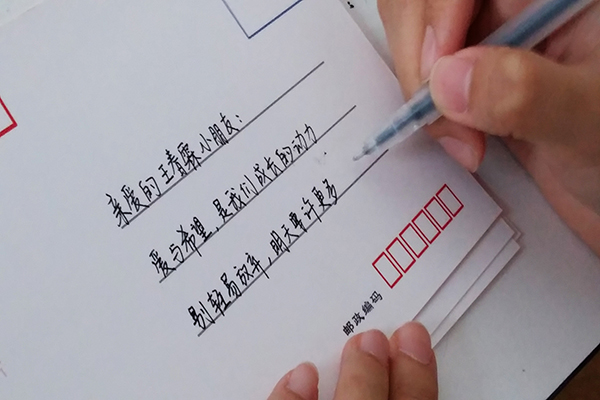 亲爱的王青霖小朋友：
爱与希望，是我们成长的动力
别轻易放弃，明天要许更多
邮政编码